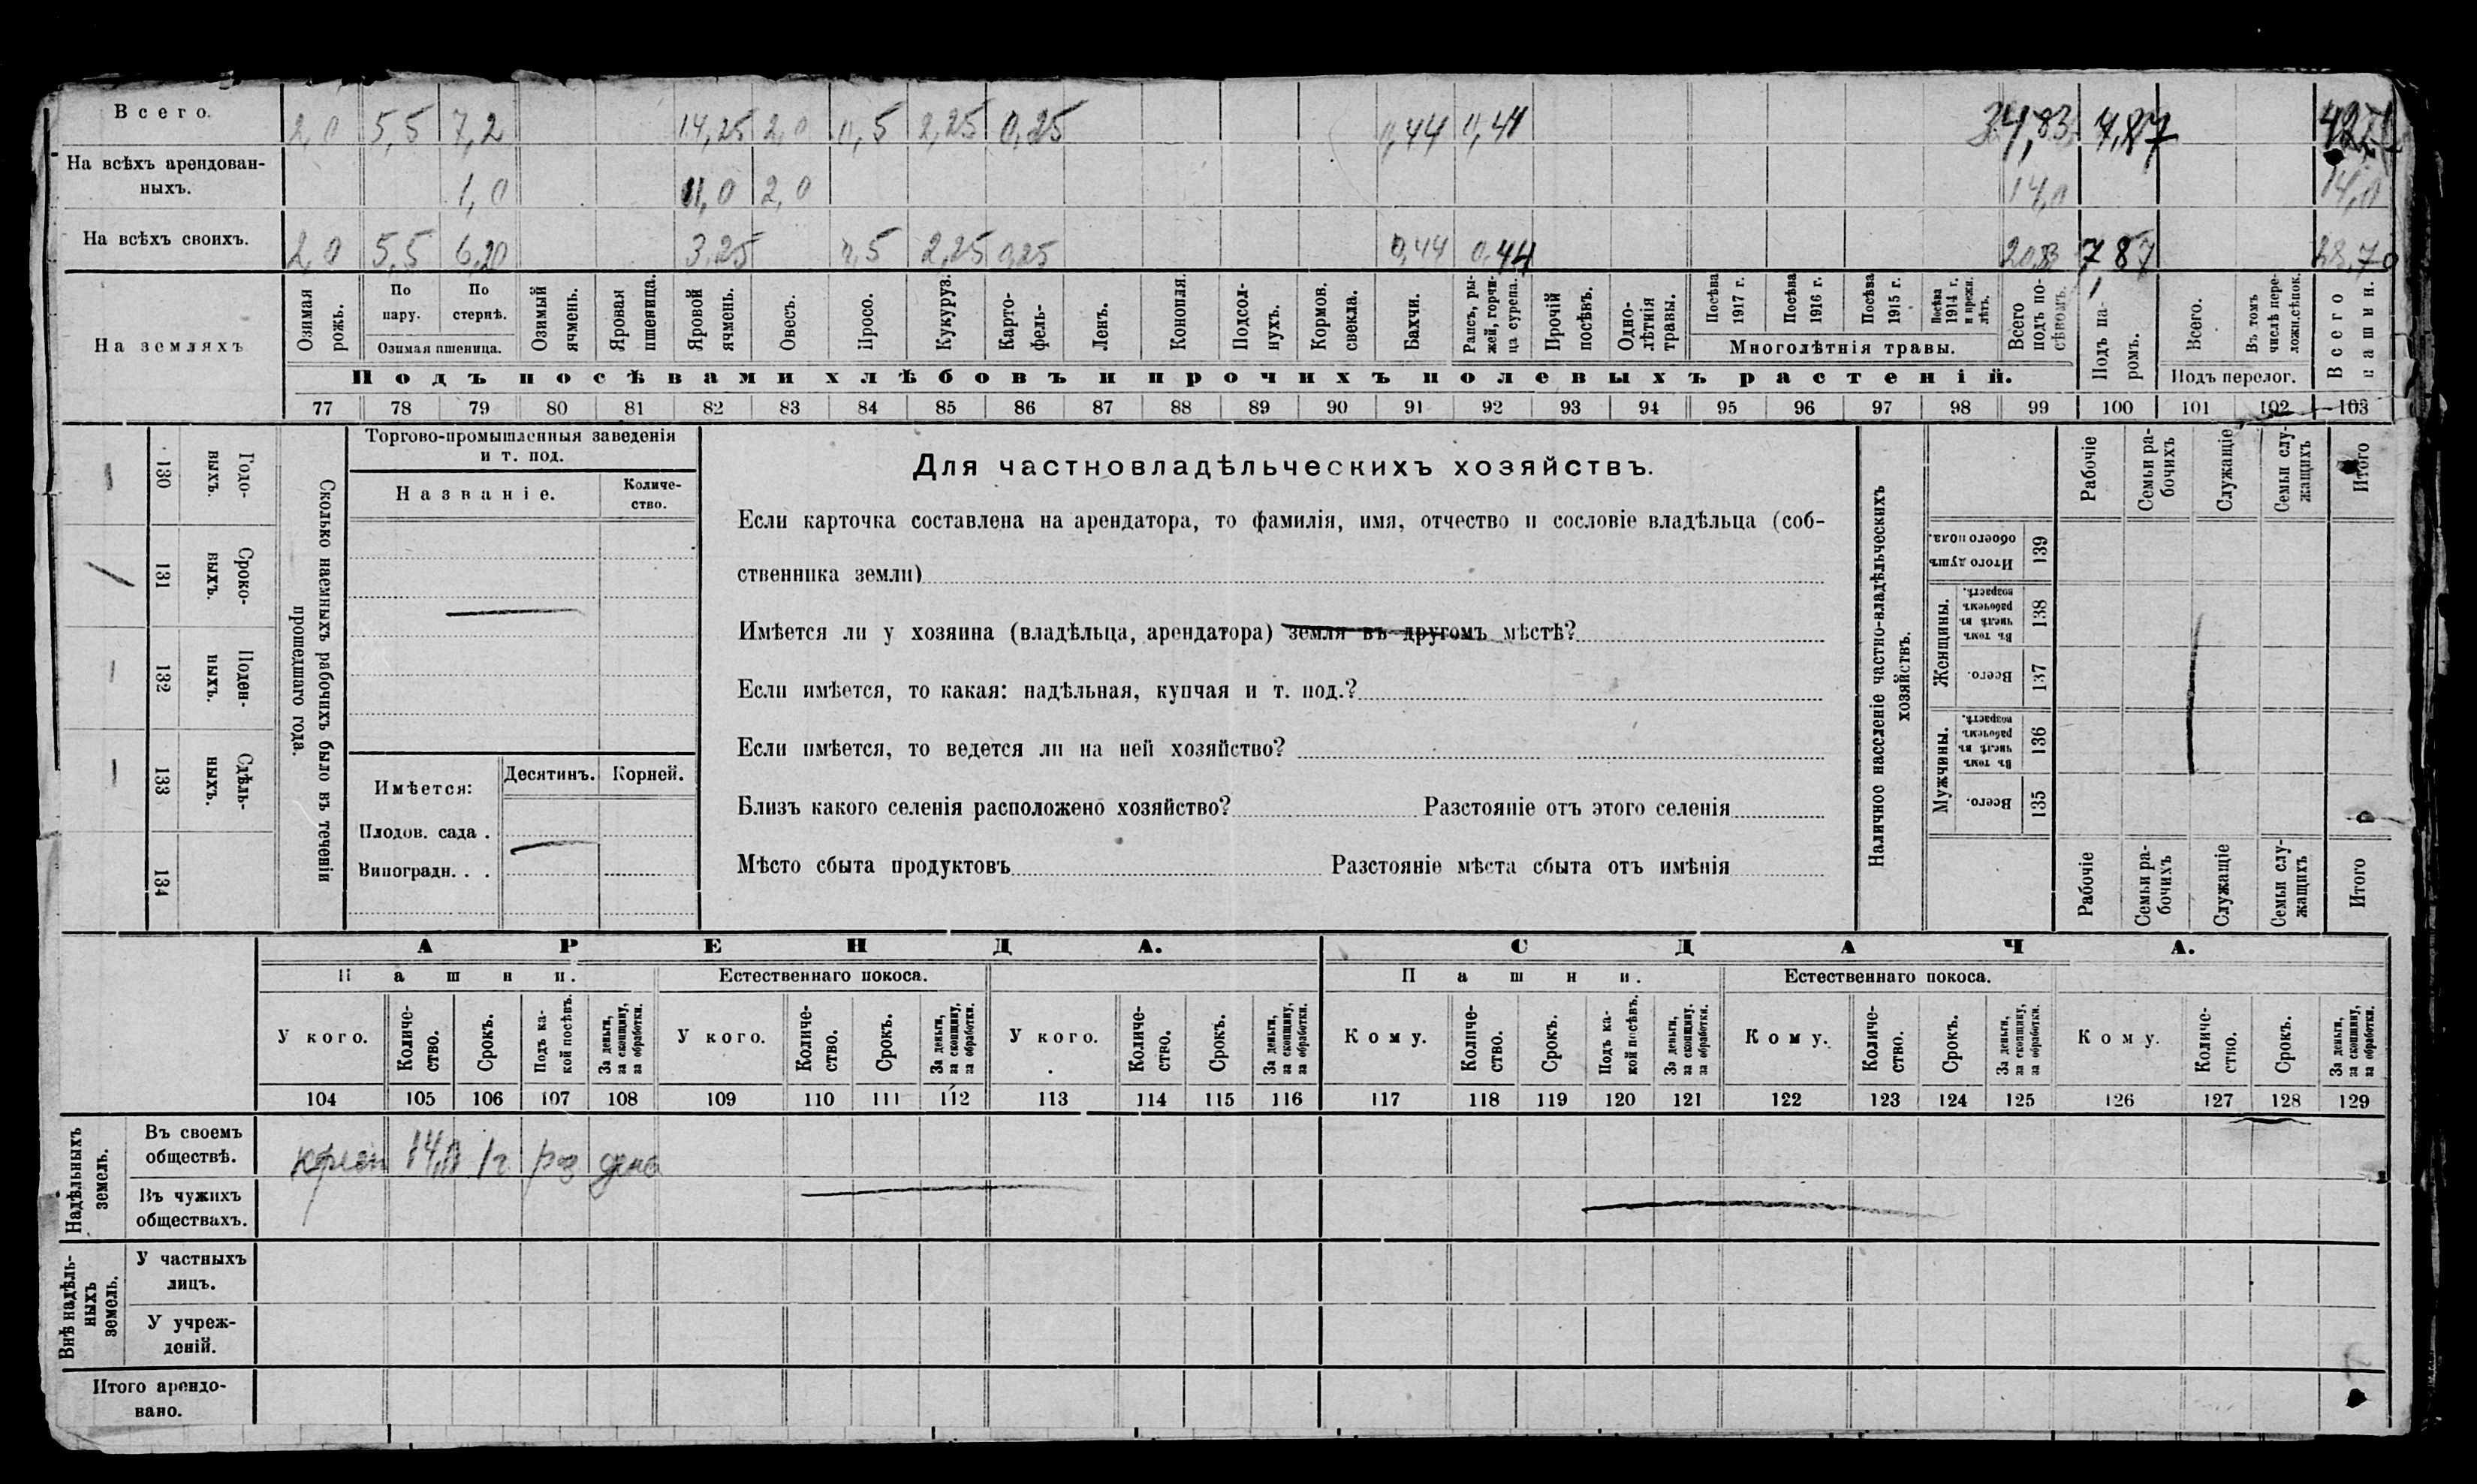 Всего. 2,0 5,5 7,2 14,25 2,0 0,5 2,25 0,25 0,44 0,44 34,83 7,87
На всѣхъ арендован-
ныхъ. 1,0 11,0 2,0 14,0 14,0
На всѣхъ своихъ. 2,0 5,5 6,20 3,25 0,5 2,25 0,25 0,44 0,44 20,83 7,87 28,70
На земляхъ
Озимая рожь.
По пару.
По стернѣ.
Озимая пшеница.
Озимый ячмень.
Яровая пшеница.
Яровой ячмень.
Овесъ.
Просо.
Кукуруз.
Карто-
фель.
Ленъ.
Конопля.
Подсол-
нухъ.
Кормов.
свекла.
Бахчи.
Рапсъ, ры-
жей, горчи-
ца сурепа.
Прочій
посѣвъ.
Одно-
лѣтнія
травы.
Посѣва
1917 г.
Посѣва
1916 г.
Посѣва
1915 г.
Посѣва
1914 г.
и прежн.
лѣтъ.
Многолѣтнія травы.
Всего
подъ по-
сѣвомъ.
Подъ па-
ромъ.
Всего.
Въ томъ
числѣ пере-
ложн.сѣнок.
Подъ перелог.
Всего
пашни.
Подъ посѣвами хлѣбовъ и прочихъ полевыхъ растеній.
77 78 79 80 81 82 83 84 85 86 87 88 89 90 91 92 93 94 95 96 97 98 99 100 101 102 103
Сколько наемныхъ рабочихъ было въ теченіи
прошедшаго года.
Годо-
выхъ.
130
Сроко-
выхъ.
131
Поден-
ныхъ.
132
Сдѣль-
ныхъ.
133
134
Торгово-промышленныя заведенія
и т. под.
Названіе.
Количе-
ство.
Имѣется:
Десятинъ. Корней.
Плодов. сада .
Виноградн. . .
Для частновладѣльческихъ хозяйствъ.
Если карточка составлена на арендатора, то фамилія, имя, отчество и сословіе владѣльца (соб-
ственника земли)
Имѣется ли у хозяина (владѣльца, арендатора) земля въ другомъ мѣстѣ?
Если имѣется, то какая: надѣльная, купчая и т. под.?
Если имѣется, то ведется ли на ней хозяйство?
Близъ какого селенія расположено хозяйство? Разстояніе отъ этого селенія
Мѣсто сбыта продуктовъ Разстояніе мѣста сбыта отъ имѣнія
Наличное населеніе частно-владѣльческихъ
хозяйствъ.
Рабочіе
Семьи ра-
бочихъ
Служащіе
Семьи слу-
жащихъ
Итого
Итого душъ
обоего пола.
139
Женщины.
Въ томъ
числѣ въ
рабочемъ
возрастѣ.
138
Всего.
137
Мужчины.
Въ томъ
числѣ въ
рабочемъ
возрастѣ.
136
Всего.
135
Рабочіе
Семьи ра-
бочихъ
Служащіе
Семьи слу-
жащихъ
Итого
АРЕНДА. СДАЧА.
Пашни. Естественнаго покоса. Пашни. Естественнаго покоса.
У кого.
Количе-
ство.
Срокъ.
Подъ ка-
кой посѣвъ.
За деньги,
за скопщину,
за обработки.
У кого.
Количе-
ство.
Срокъ.
За деньги,
за скопщину,
за обработки.
У кого.
Количе-
ство.
Срокъ.
За деньги,
за скопщину,
за обработки.
Кому.
Количе-
ство.
Срокъ.
Подъ ка-
кой посѣвъ.
За деньги,
за скопщину.
за обработки.
Кому.
Количе-
ство.
Срокъ.
За деньги,
за скопщину,
за обработки.
Кому.
Количе-
ство.
Срокъ.
За деньги,
за скопщину,
за обработки.
104 105 106 107 108 109 110 111 112 113 114 115 116 117 118 119 120 121 122 123 124 125 126 127 128 129
Надѣльныхъ
земель.
Въ своемъ
обществѣ. 14,0 1г
Въ чужихъ
обществахъ.
Внѣ надѣль-
ныхъ
земель.
У частныхъ
лицъ.
У учреж-
деній.
Итого арендо-
вано.